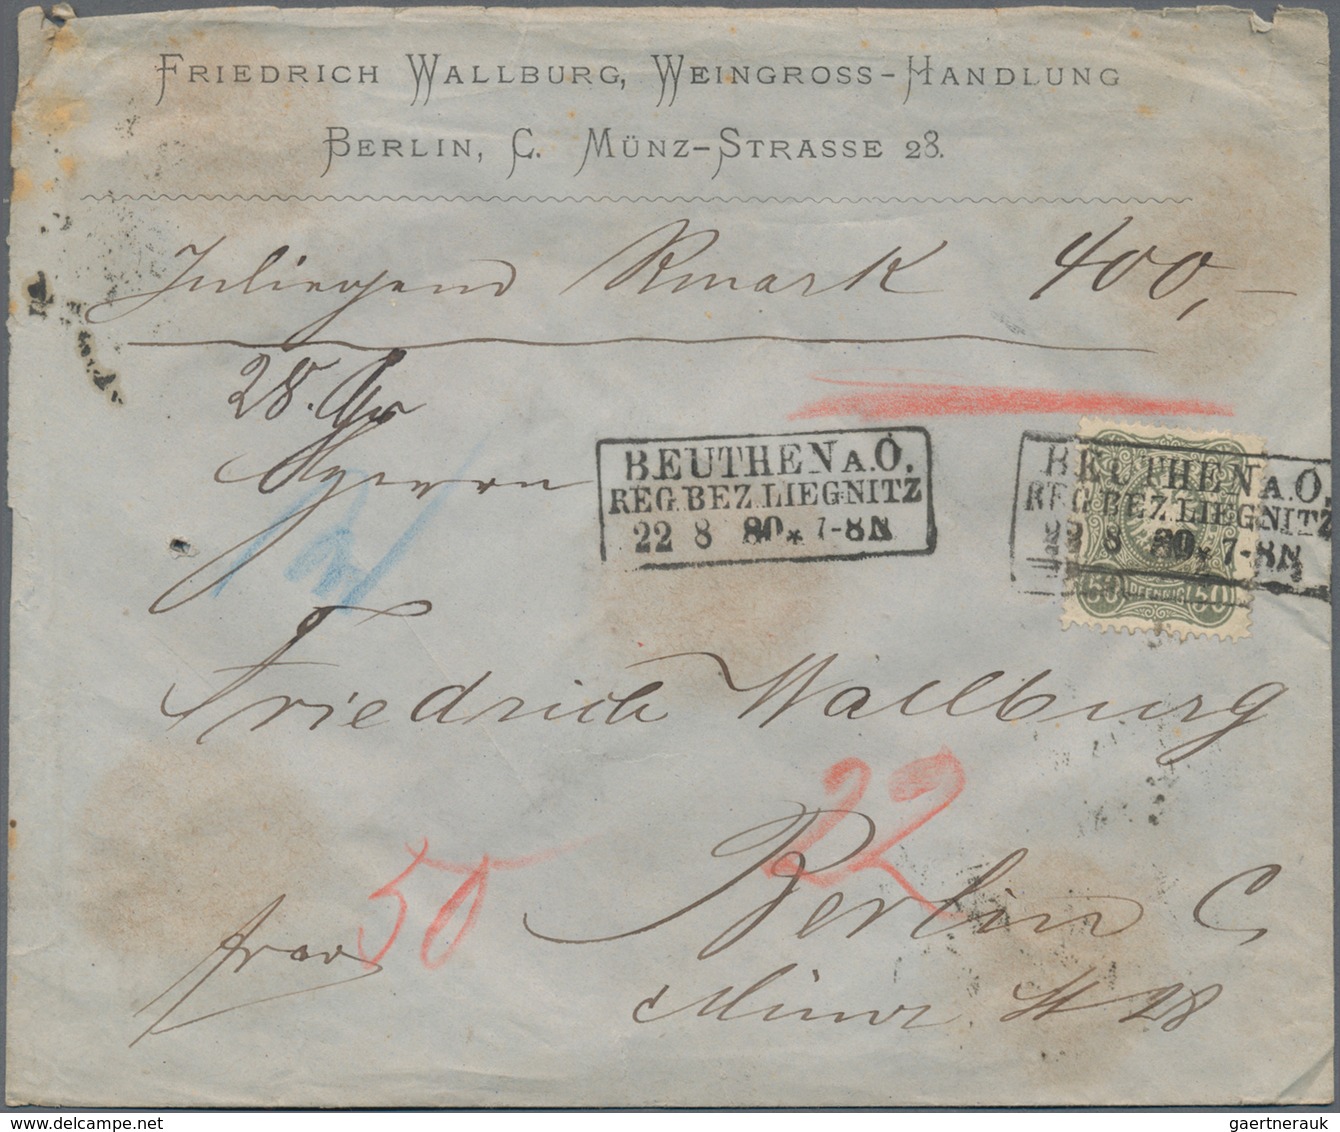 FRIEDRICH WALLBURG, WEINGROSS-HANDLUNG
BERLIN, C. MÜNZ-STRASSE 28.
Inliegend Rmark 400,-
28. Gr
Herrn
BEUTHEN A. O.
REG. BEZ. LIEGNITZ
22 8 80 * 7-8N
BEUTHEN A. O.
REG. BEZ. LIEGNITZ
22 8 80 * 7-8N
50 PFENNIG 50
Friedrich Wallburg
22
50
Berlin C
Münz St 28
gaertnerauk